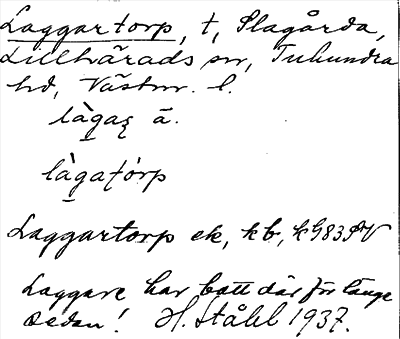 Laggartorp, t, Slagårda,
Lillhärads sn, Tuhundra
hd, Västm. l.
là̱gaʀ ä.
là̱gatórp
Laggartorp ek, kb, k 983 SV
Laggare har bott där för länge
sedan! H. Ståhl 1937.